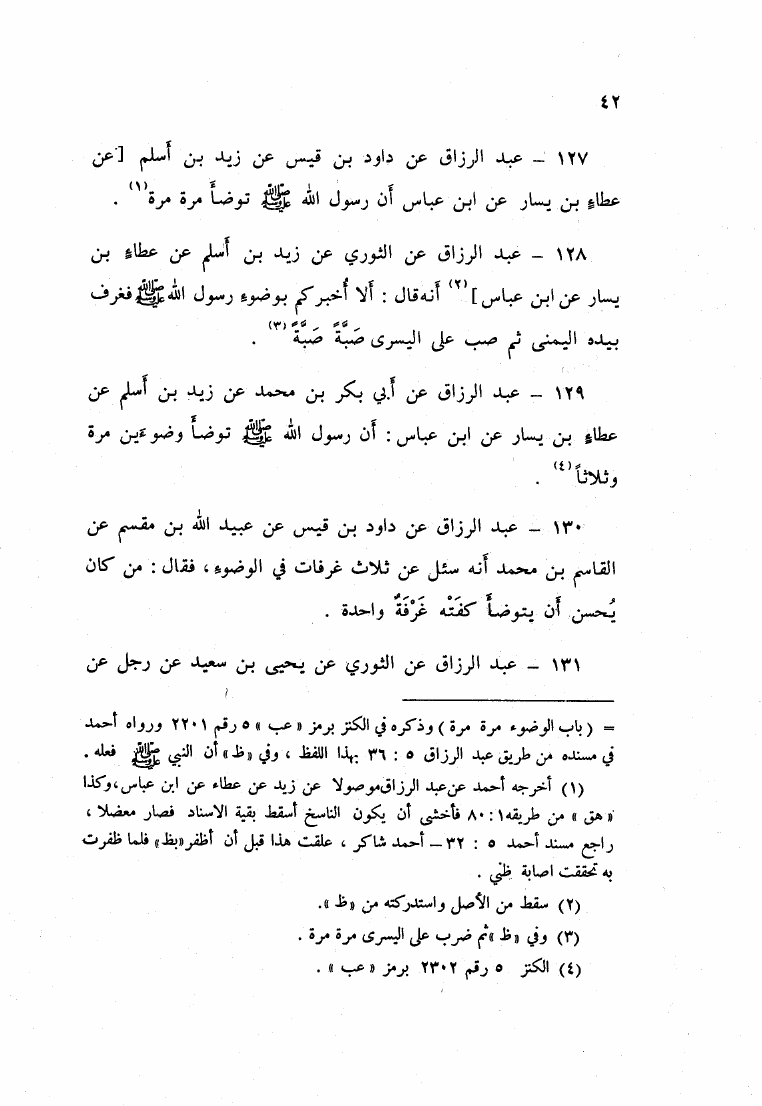 ٤٢
١٢٧ – عبد الرزاق عن داود بن قيس عن زيد بن أسلم [عن
عطاءِ بن يسار عن ابن عباس أن رسول الله ﷺ توضأَ مرة مرة(١) .
١٢٨ – عبد الرزاق عن الثوري عن زيد بن أسلم عن عطاءِ بن
يسار عن ابن عباس](٢) أنه قال : ألا أُخبركم بوضوءِ رسول الله ﷺ فغرف
بيده اليمنى ثم صب على اليسرى صَبَّةً صَبَّةً(٣) .
١٢٩ – عبد الرزاق عن أبي بكر بن محمد عن زيد بن أسلم عن
عطاءِ بن يسار عن ابن عباس : أن رسول الله ﷺ توضأَ وضوءَين مرة
وثلاثاً(٤) .
١٣٠ – عبد الرزاق عن داود بن قيس عن عبيد الله بن مقسم عن
القاسم بن محمد أنه سئل عن ثلاث غرفات في الوضوءِ ، فقال : من كان
يُحسن أن يتوضأَ كفَتْه غَرْفَةٌ واحدة .
١٣١ – عبد الرزاق عن الثوري عن يحيى بن سعيد عن رجل عن
= (باب الوضوء مرة مرة) وذكره في الكنز برمز «عب» ٥ رقم ٢٢٠١ ورواه أحمد
في مسنده من طريق عبد الرزاق ٥ : ٣٦ بهذا اللفظ ، وفي «ظ» أن النبي ﷺ فعله .
(١) أخرجه أحمد عن عبد الرزاق موصولا عن زيد عن عطاء عن ابن عباس، وكذا
«هق» من طريقه ١ : ٨٠ فأخشى أن يكون الناسخ أسقط بقية الاسناد فصار معضلا ،
راجع مسند أحمد ٥ : ٣٢ – أحمد شاكر ، علقت هذا قبل أن أظفر «بظ» فلما ظفرت
به تحققت اصابة ظني .
(٢) سقط من الأصل واستدركته من «ظ».
(٣) وفي «ظ» ثم ضرب على اليسرى مرة مرة .
(٤) الكنز ٥ رقم ٢٣٠٢ برمز «عب» .